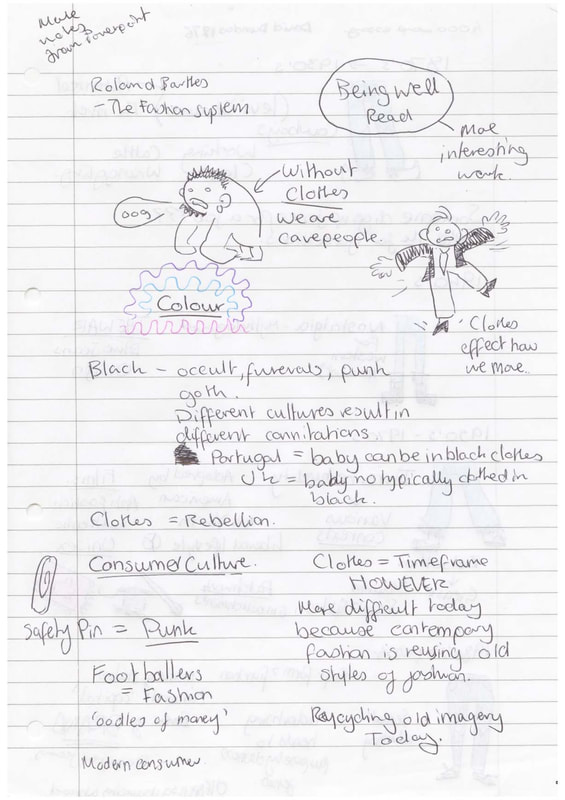 More
notes
from powerpoint
Roland Barthes
- The Fashion system
Being well
Read
More
interesting
work.
Without
Clothes
we are
cavepeople.
oog
Colour
Clothes
effect how
we move..
Black - occult, funerals, punk
goth.
Different cultures result in
different connitations.
Portugal = baby can be in black clothes
UK = baby no typically clothed in
black.
Clothes = Rebellion.
Consumer Culture.
Safety Pin = Punk
Footballers
= Fashion
'oodles of money'
Modern consumer.
Clothes = Timeframe
HOWEVER
More difficult today
because contempory
fashion is reusing old
styles of fashion.
Recycling old imagery
Today.